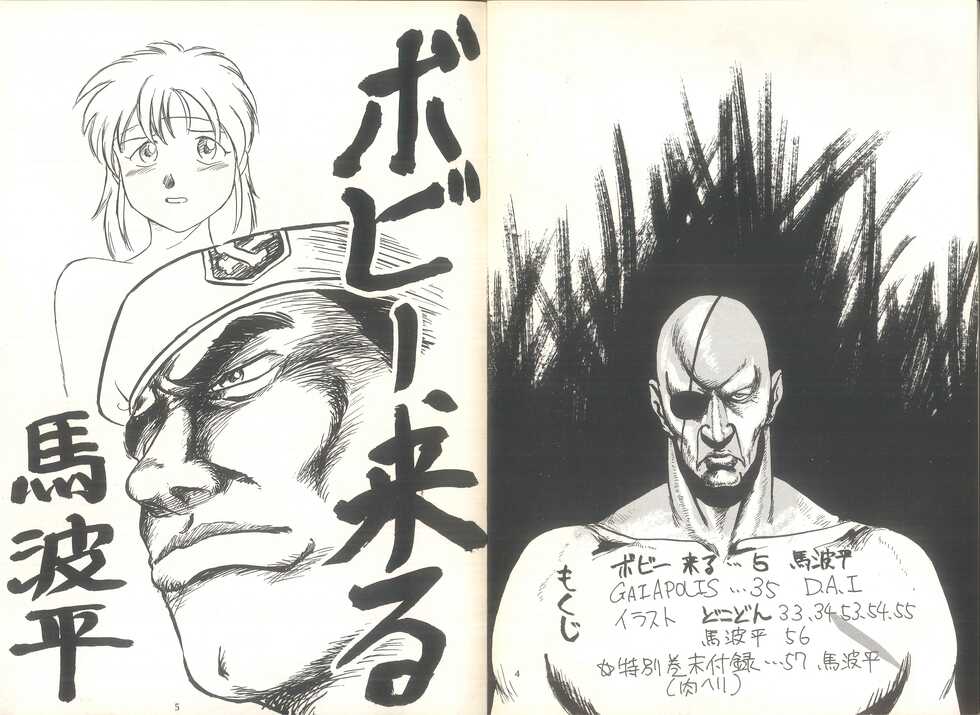 もくじ
ボビー 来る … 5 馬波平
GAIAPOLIS … 35 D.A.I
イラスト どこどん 33、34、53、54、55
馬波平 56
☆特別巻末付録 … 57 馬波平
(肉ヘリ)
4
ボビー、来る
馬波平
5